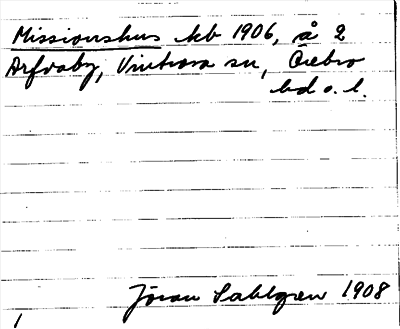 Missionshus kb 1906, å 2
Arfvaby, Vintrosa sn, Örebro
hd o. l.
Jöran Sahlgren 1908